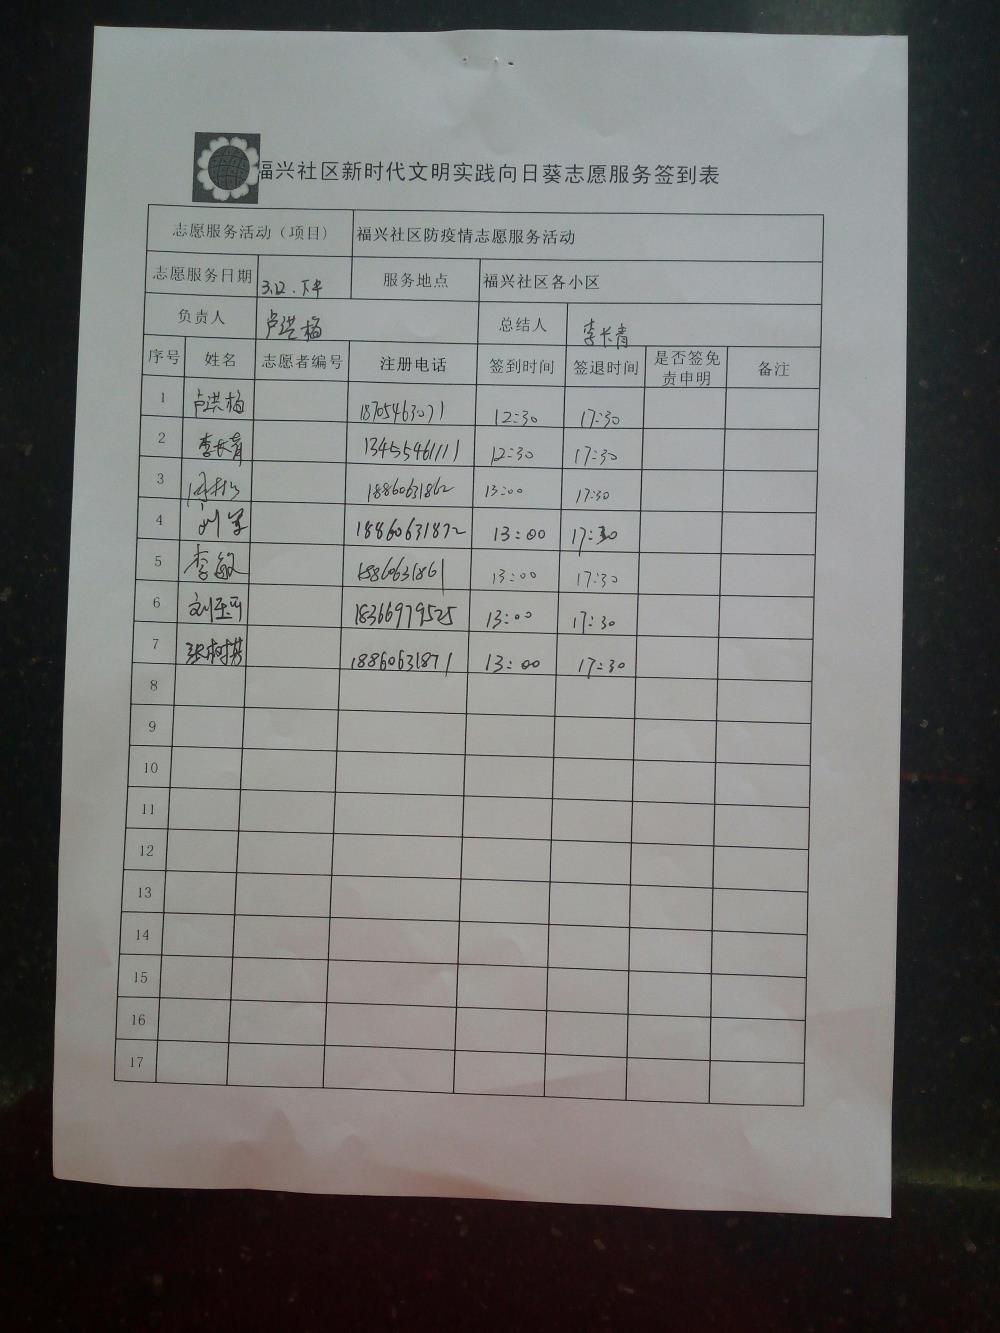 福兴社区新时代文明实践向日葵志愿服务签到表
志愿服务活动（项目） 福兴社区防疫情志愿服务活动
志愿服务日期 3.12.下午 服务地点 福兴社区各小区
负责人 卢洪梅 总结人 李长青
序号 姓名 志愿者编号 注册电话 签到时间 签退时间 是否签免责申明 备注
1 卢洪梅 18705463071 12:30 17:30
2 李长青 13455461111 12:30 17:30
3 18860631862 13:00 17:30
4 刘军 18860631872 13:00 17:30
5 李敏 18860631861 13:00 17:30
6 18366979525 13:00 17:30
7 18860631871 13:00 17:30
8
9
10
11
12
13
14
15
16
17